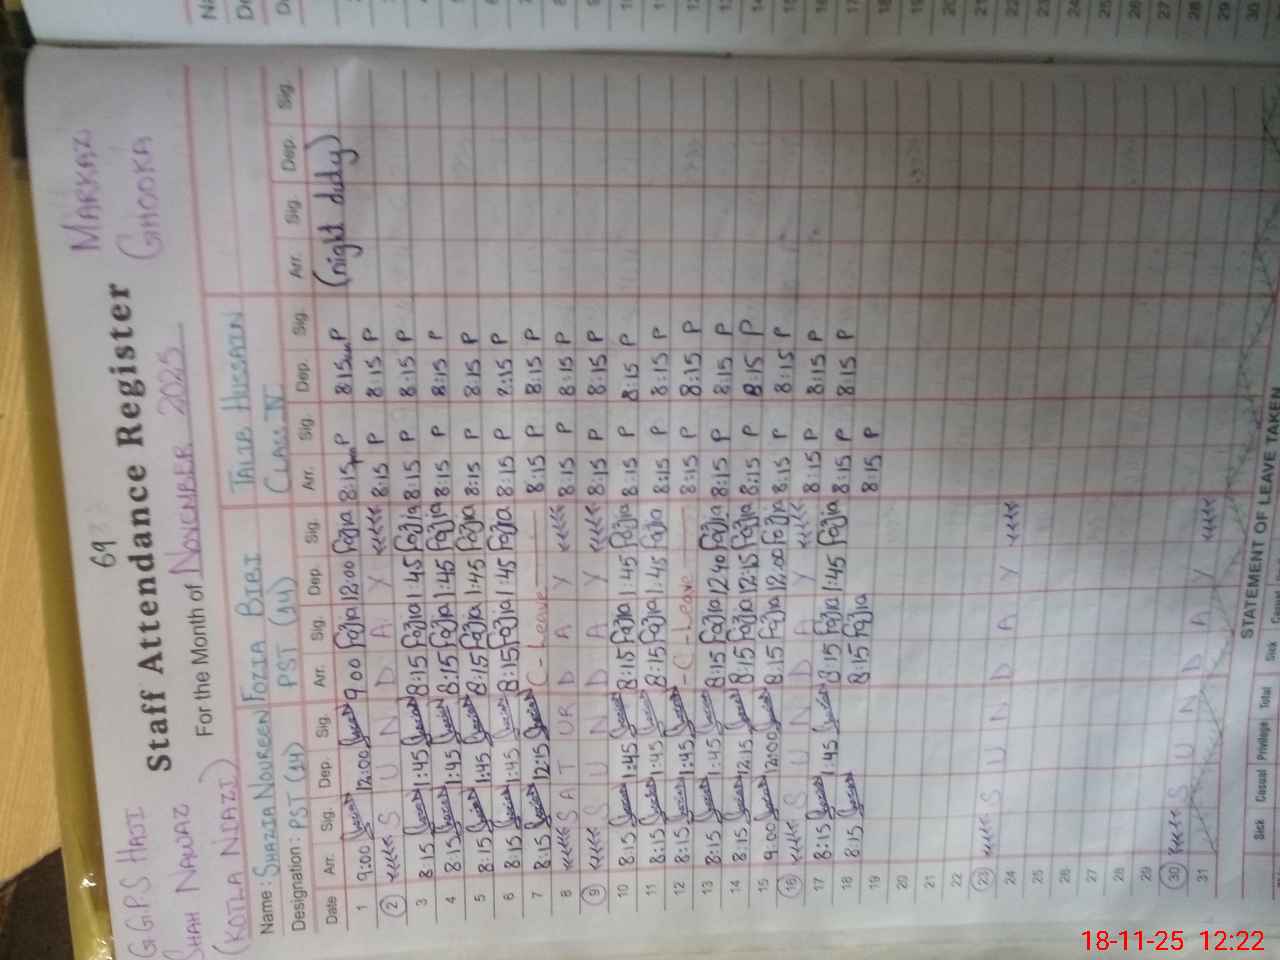 69
GGPS HAJI
SHAH NAWAZ
(KOTLA NIAZI)
MARKAZ
GHOOKA
Staff Attendance Register
For the Month of NOVEMBER 2025
Name: SHAZIA NOUREEN FOZIA BIBI TALIB HUSSAIN
Designation: PST (14) PST (14) CLASS IV
Date Arr. Sig. Dep. Sig. Arr. Sig. Dep. Sig. Arr. Sig. Dep. Sig. Arr. Sig. Dep. Sig.
1 9:00 12:00 9 00 Fozia 12:00 Fozia 8:15 pm P 8:15 P (night duty)
2 S U N D A Y 8:15 P 8:15 P
3 8:15 1:45 8:15 Fozia 1:45 Fozia 8:15 P 8:15 P
4 8:15 1:45 8:15 Fozia 1:45 Fozia 8:15 P 8:15 P
5 8:15 1:45 8:15 Fozia 1:45 Fozia 8:15 P 8:15 P
6 8:15 1:45 8:15 Fozia 1:45 Fozia 8:15 P 8:15 P
7 8:15 12:15 C-Leave 8:15 P 8:15 P
8 S A T U R D A Y 8:15 P 8:15 P
9 S U N D A Y 8:15 P 8:15 P
10 8:15 1:45 8:15 Fozia 1:45 Fozia 8:15 P 8:15 P
11 8:15 1:45 8:15 Fozia 1:45 Fozia 8:15 P 8:15 P
12 8:15 1:45 -C-Leave 8:15 P 8:15 P
13 8:15 1:45 8:15 Fozia 12:40 Fozia 8:15 P 8:15 P
14 8:15 12:15 8:15 Fozia 12:15 Fozia 8:15 P 8:15 P
15 9:00 12:00 8:15 Fozia 12:00 Fozia 8:15 P 8:15 P
16 S U N D A Y 8:15 P 8:15 P
17 8:15 1:45 8:15 Fozia 1:45 Fozia 8:15 P 8:15 P
18 8:15 8:15 Fozia 8:15 P
19
20
21
22
23 S U N D A Y
24
25
26
27
28
29
30 S U N D A Y
31
STATEMENT OF LEAVE TAKEN
Sick Casual Privilege Total Sick Casual
18-11-25 12:22